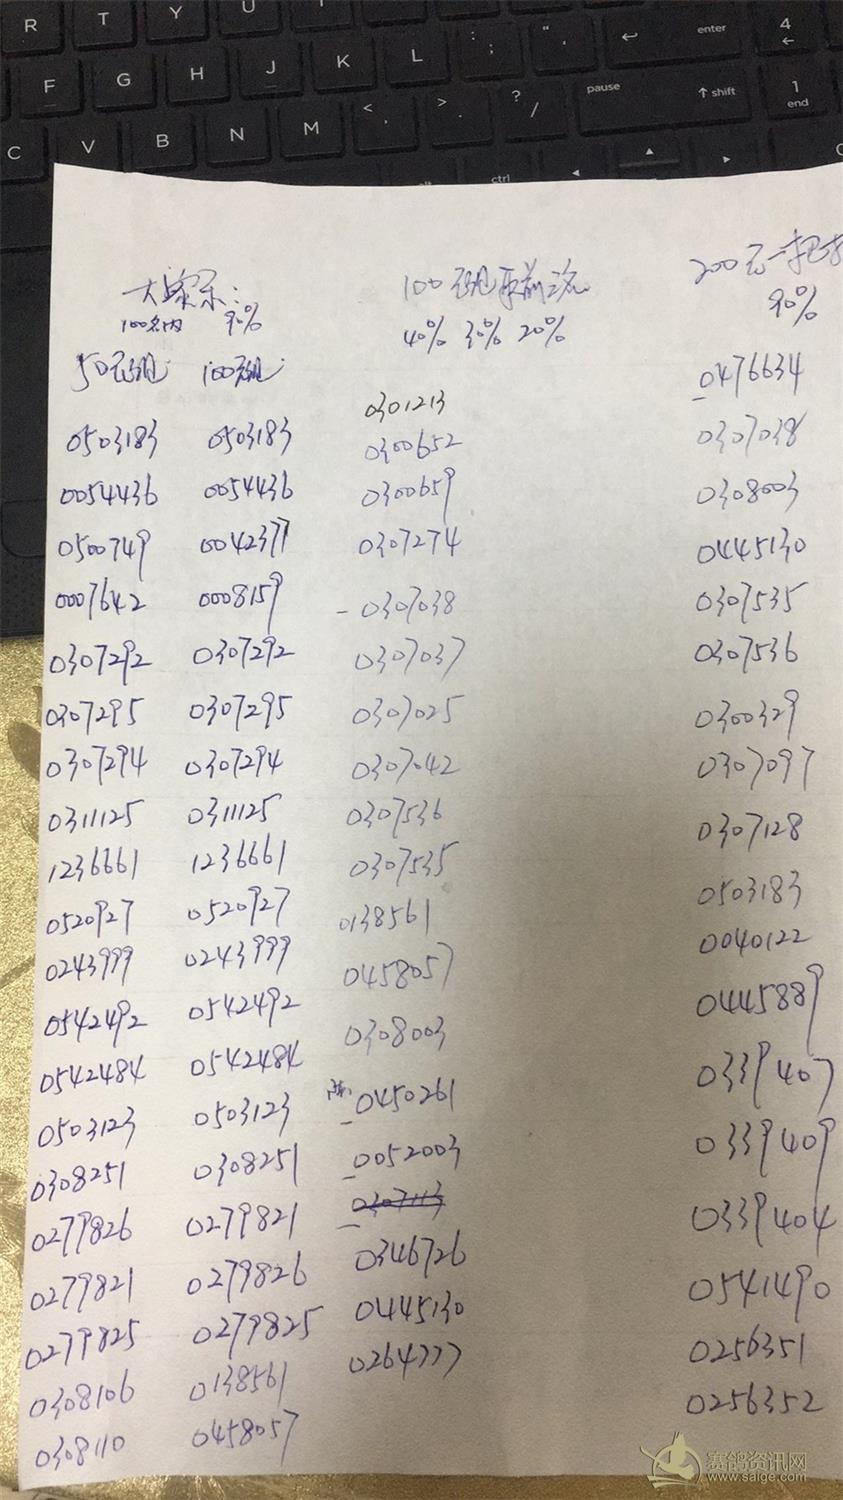 R T Y U
F G H J K L : ; " ' enter 4
C V B N M < , > . ? / pause shift 1 end
ctrl
大家乐:
100名内 90%
50元组 100元组
0503183 0503183
0054436 0054436
0500749 0042377
0007642 0008159
0307292 0307292
0307295 0307295
0307294 0307294
0311125 0311125
1236661 1236661
0520927 0520927
0243999 0243999
0542492 0542492
0542484 0542484
0503123 0503123
0308251 0308251
0279826 0279821
0279821 0279826
0279825 0279825
0308106 0138561
0308110 0458057
100元组取前三名
40% 30% 20%
0301213
0300652
0300659
0307274
0307038
0307037
0307025
0307042
0307536
0307535
0138561
0458057
0308003
0450261
0052003
0307113
0346726
0445130
0264777
200元一把抓
90%
0476634
0307038
0308003
0445130
0307535
0307536
0300329
0307097
0307128
0503183
0040122
0445889
0339407
0339409
0339404
0541490
0256351
0256352
赛鸽资讯网
www.saige.com